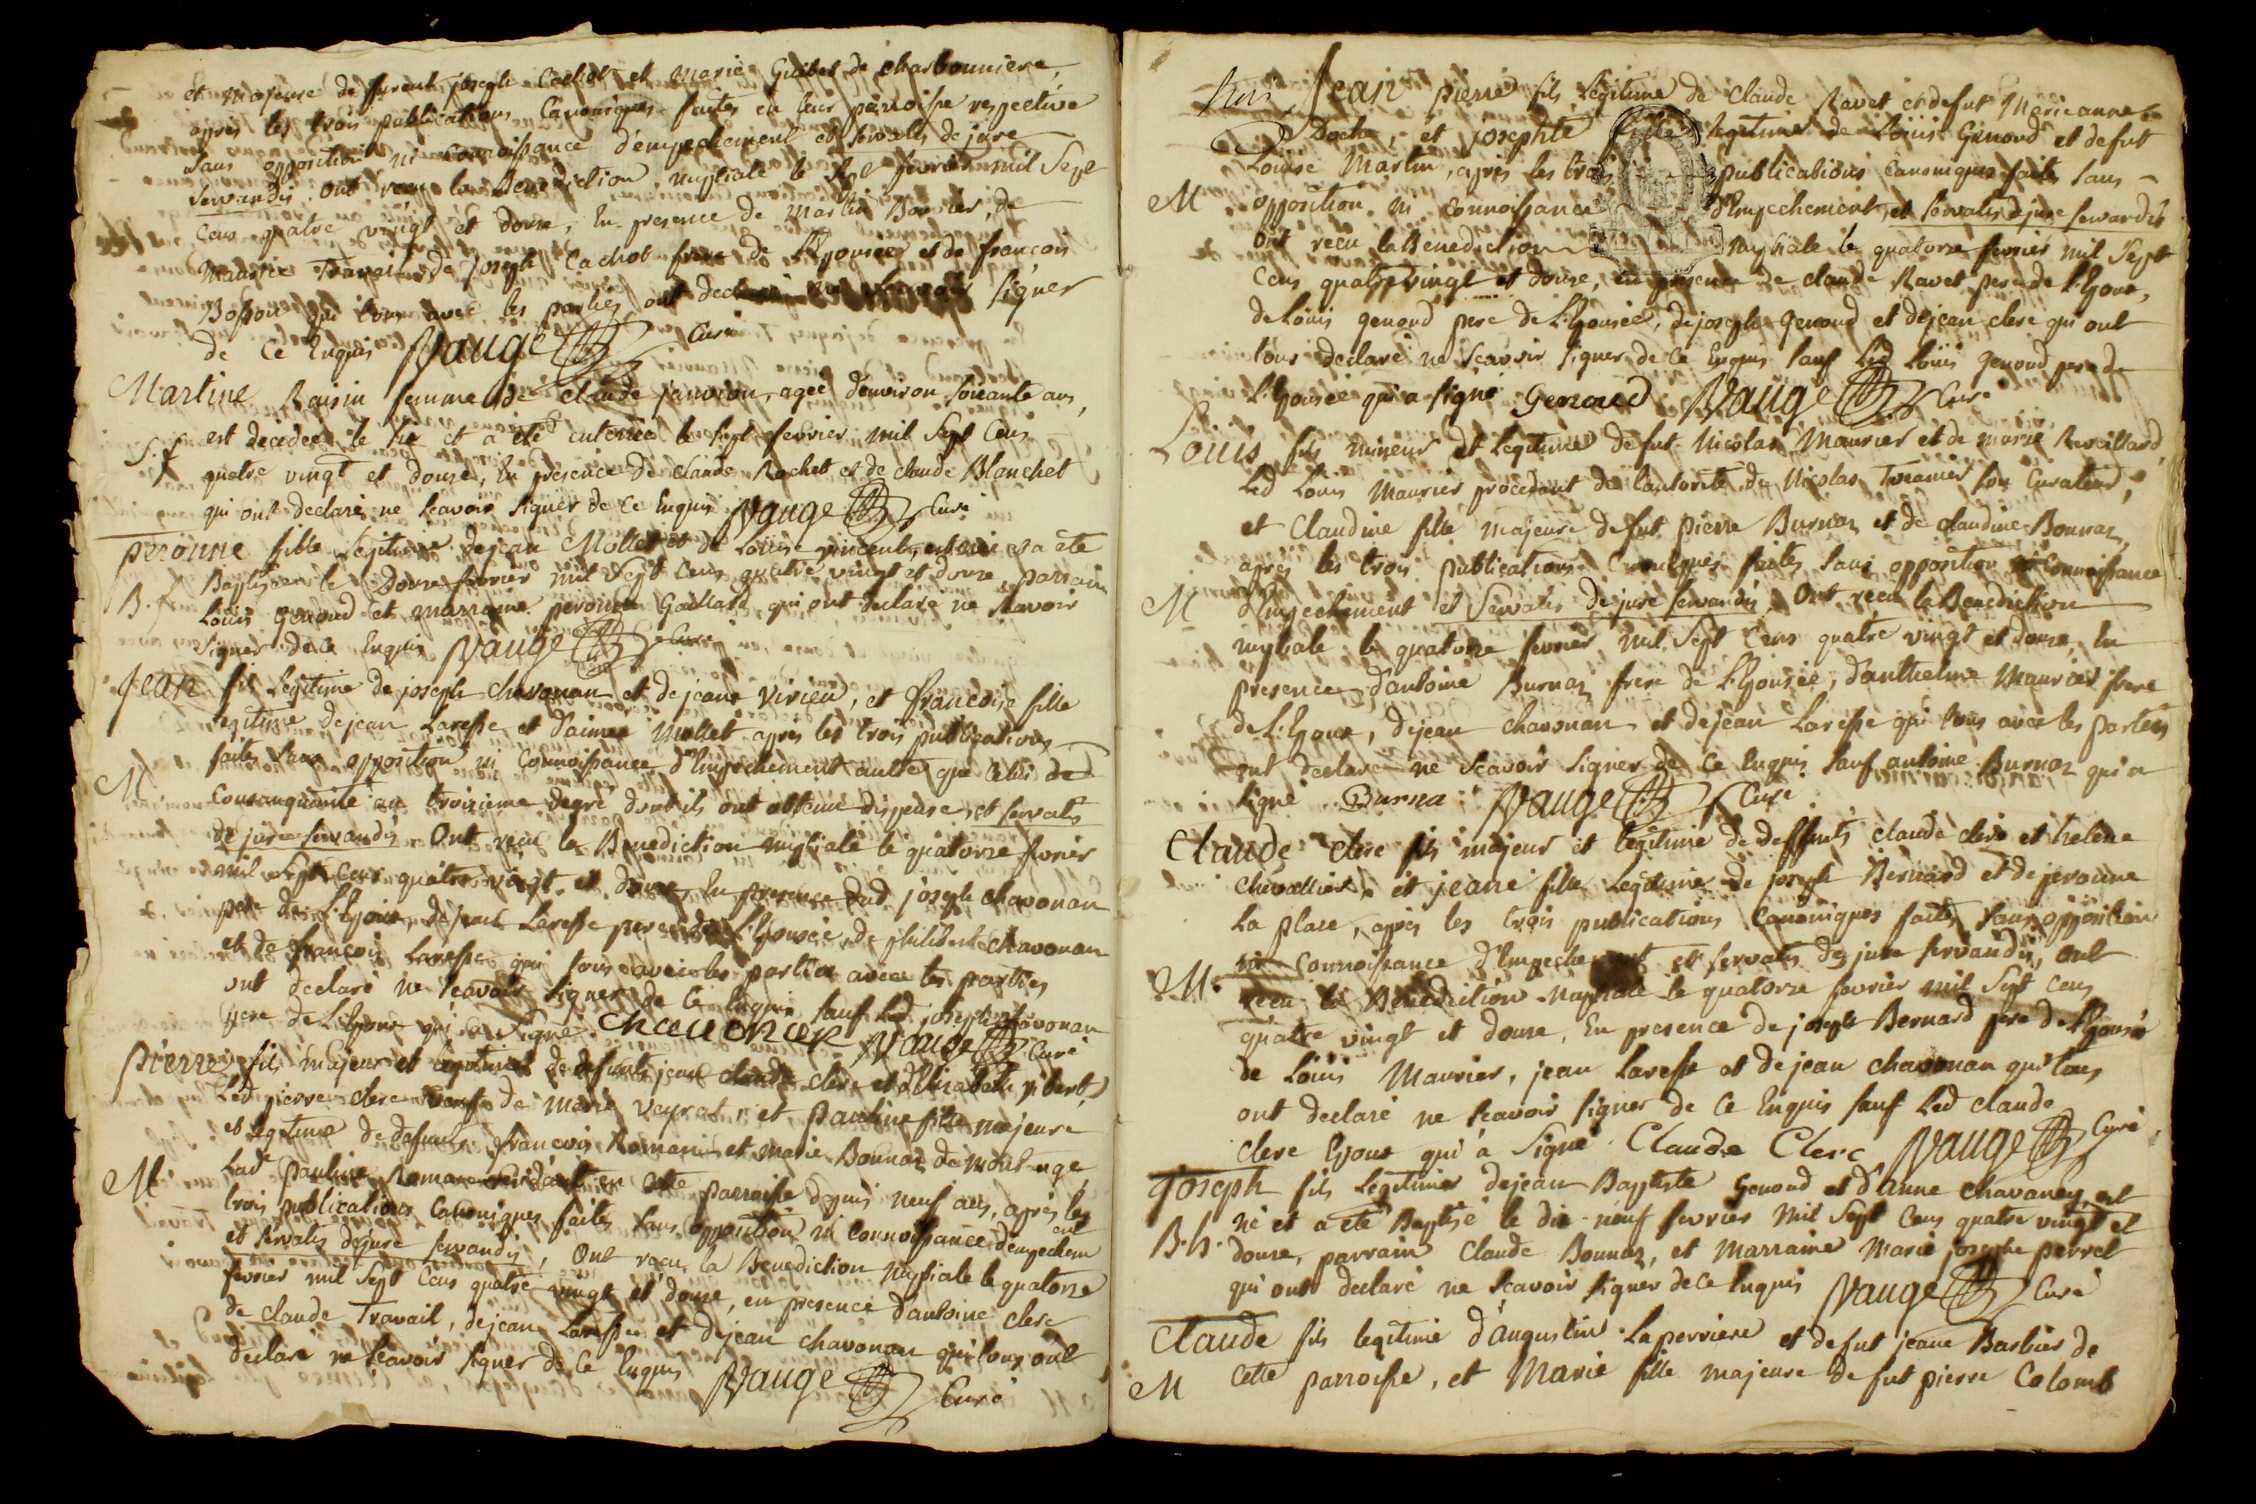 et majeure de furent joseph Cachot et Marie Guibet de charbonniere,
après les trois publications Canoniques faites en leur parroisse respective
sans opposition ni connoissance d'empechement et servatis de jure
servandis. ont reçu la Benediction nuptiale le sept fevrier mil Sept
Cens quatre vingt et douse, En presence de Martin Bouvier, de
Maurice Travail, de Joseph Cachot frere de L'Epousée et de francois
Bosson qui tous avec les parties ont declaré ne scavoir signer
de Ce Enquis Vauge Curé
Martine Raisin femme de Claude janvion, agée d'environ soixante ans,
S.f est decedée le six et a été enterrée le sept fevrier mil Sept Cens
quatre vingt et douse, En presence de Claude Rochet et de claude Blanchet
qui ont declaré ne scavoir signer de Ce Enquis Vauge Curé
peronne fille Legitime de jean Mollet et de Louise vincent, est née et a été
B.f Baptisée le Douse fevrier mil Sept Cens quatre vingt et douse, parrain
Louis Genoud et marraine peronne Gaillard, qui ont declaré ne scavoir
signer de Ce Enquis Vauge Curé
Jean fils Legitime de joseph chavonan et de jeane Virieu, et francoise fille
legitime de jean Laresse et d'aimée Mollet après les trois publications
M faites sans opposition ni Connoissance d'Empechement autre que Celui de
Consanguinité au troisieme degré dont ils ont obtenu dispense, et servatis
de jure servandis. Ont reçu la Benediction nuptiale le quatorze fevrier
mil Sept Cens quatre vingt et douse, En presence dud joseph chavonan
pere de L'Epoux, de jean Laresse pere de L'Epousée, de philibert chavonan
et de francois Laresse qui tous avec les parties avec les parties
ont declaré ne scavoir signer de Ce Enquis sauf Led joseph chavonan
pere de L'Epoux qui a signé. chauonan Vauge Curé
pierre fils majeur et legitime de defunts jean claude clerc et d'Elisabeth jibert,
Led pierre clerc veuf de Marie Veyrat, et pauline fille majeure
et legitime de defunts francois Romans et Marie Bonnaz de Montange,
M Lade pauline Romans residante en Cette parroisse depuis neuf ans, après les
trois publications Canoniques faites sans opposition ni connoissance d'empechem ent
et servatis dejure servandis, Ont reçu la Benediction Nuptiale le quatorze
fevrier mil Sept Cens quatre vingt et douse, en presence d'antoine clerc
de claude Travail, dejean Laresse et dejean chavonan qui tous ont
declaré ne scavoir signer de Ce Enquis Vauge Curé
Jean pierre fils Legitime de claude Ravet et defut Marieanne
Doche, et josephte fille legitime de Louis Genoud et defut
Louise Martin, après les trois publications canoniques faites sans
M opposition ni connoissance d'Empechement, et servatis dejure servandis
Ont reçu la Benediction Nuptiale le quatorze fevrier mil Sept
Cens quatre vingt et douse, en presence de claude Ravet pere de L'Epoux,
de Louis genoud pere de L'Epousée, dejoseph Genoud et dejean clerc qui ont
tous declaré ne scavoir signer de Ce Enquis sauf Led Louis genoud pere de
L'Epousée qui a signé Genoud Vauge Curé
Louis fils mineur et Legitime defut Nicolas Maurier et de marie Reveillard,
Led Louis Maurier procedant de l'autorité de Nicolas Tremier son Curateur,
et Claudine fille majeure defut pierre Burnaz et de claudine Bonnaz,
après les trois publications Canoniques faites sans opposition ni connoissance
M d'Empechement et Servatis dejure servandis. Ont reçu la Benediction
nuptiale le quatorze fevrier mil Sept Cens quatre vingt et douse, En
presence d'antoine Burnaz frere de L'Epousée, d'anthelme Maurier frere
de L'Epoux, dejean chavonan et dejean Laresse qui tous avec les parties
ont declaré ne Scavoir signer de Ce Enquis sauf antoine Burnaz qui a
signé Burna Vauge Curé
Claude clerc fils majeur et legitime de deffunts claude clerc et helene
chevallier, et jeane fille Legitime de joseph Bernard et de jeronne
La place, après les trois publications Canoniques faites sans opposition
M. ni connoissance d'Empechement et servatis de jure servandis, ont
reçu la Benediction Nuptiale le quatorze fevrier mil Sept Cens
quatre vingt et douse. En presence de joseph Bernard pere de L'Epousée
de Louis Maurier, jean Laresse et dejean chavonan qui tous
ont declaré ne scavoir signer de Ce Enquis sauf Led claude
clerc Epoux qui a Signé. Claude Clerc Vauge Curé
joseph fils Legitime dejean Baptiste Genoud et d'anne chavaney, est
B.h. né et a été Baptisé le dix-neuf fevrier Mil Sept Cens quatre vingt et
douse, parrain Claude Bonnaz, et Marraine Marie josephe perret
qui ont declaré ne scavoir signer de Ce Enquis Vauge Curé
Claude fils legitime d'augustin Laperriere et defut jeane Barbier de
M Cette parroisse, et Marie fille majeure defut pierre Colomb